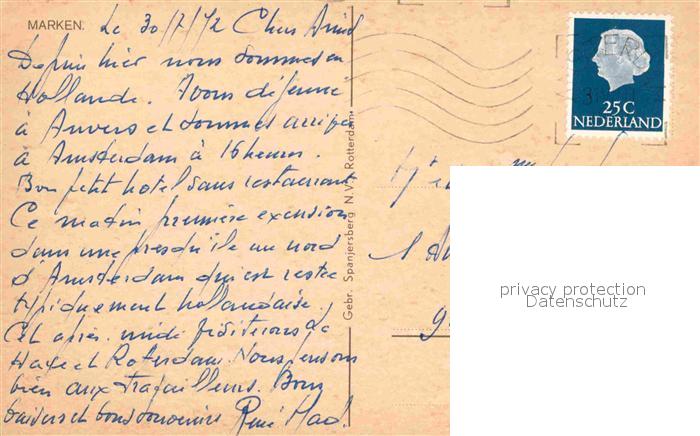 MARKEN.
Le 30/7/72 Chers Amis
Depuis hier nous sommes en
Hollande. Avons déjeuné
à Anvers et sommes arrivés
à Amsterdam à 16 heures.
Bon petit hotel sans restaurant
Ce matin première excursion
dans une presqu'île au nord
d'Amsterdam qui est restée
typiquement hollandaise.
Cet après-midi visiterons La
Haye et Roterdam. Nous pensons
bien aux travailleurs. Bons
baisers et bons souvenirs. René
Gebr. Spanjersberg N.V. Rotterdam
25C
NEDERLAND
privacy protection
Datenschutz